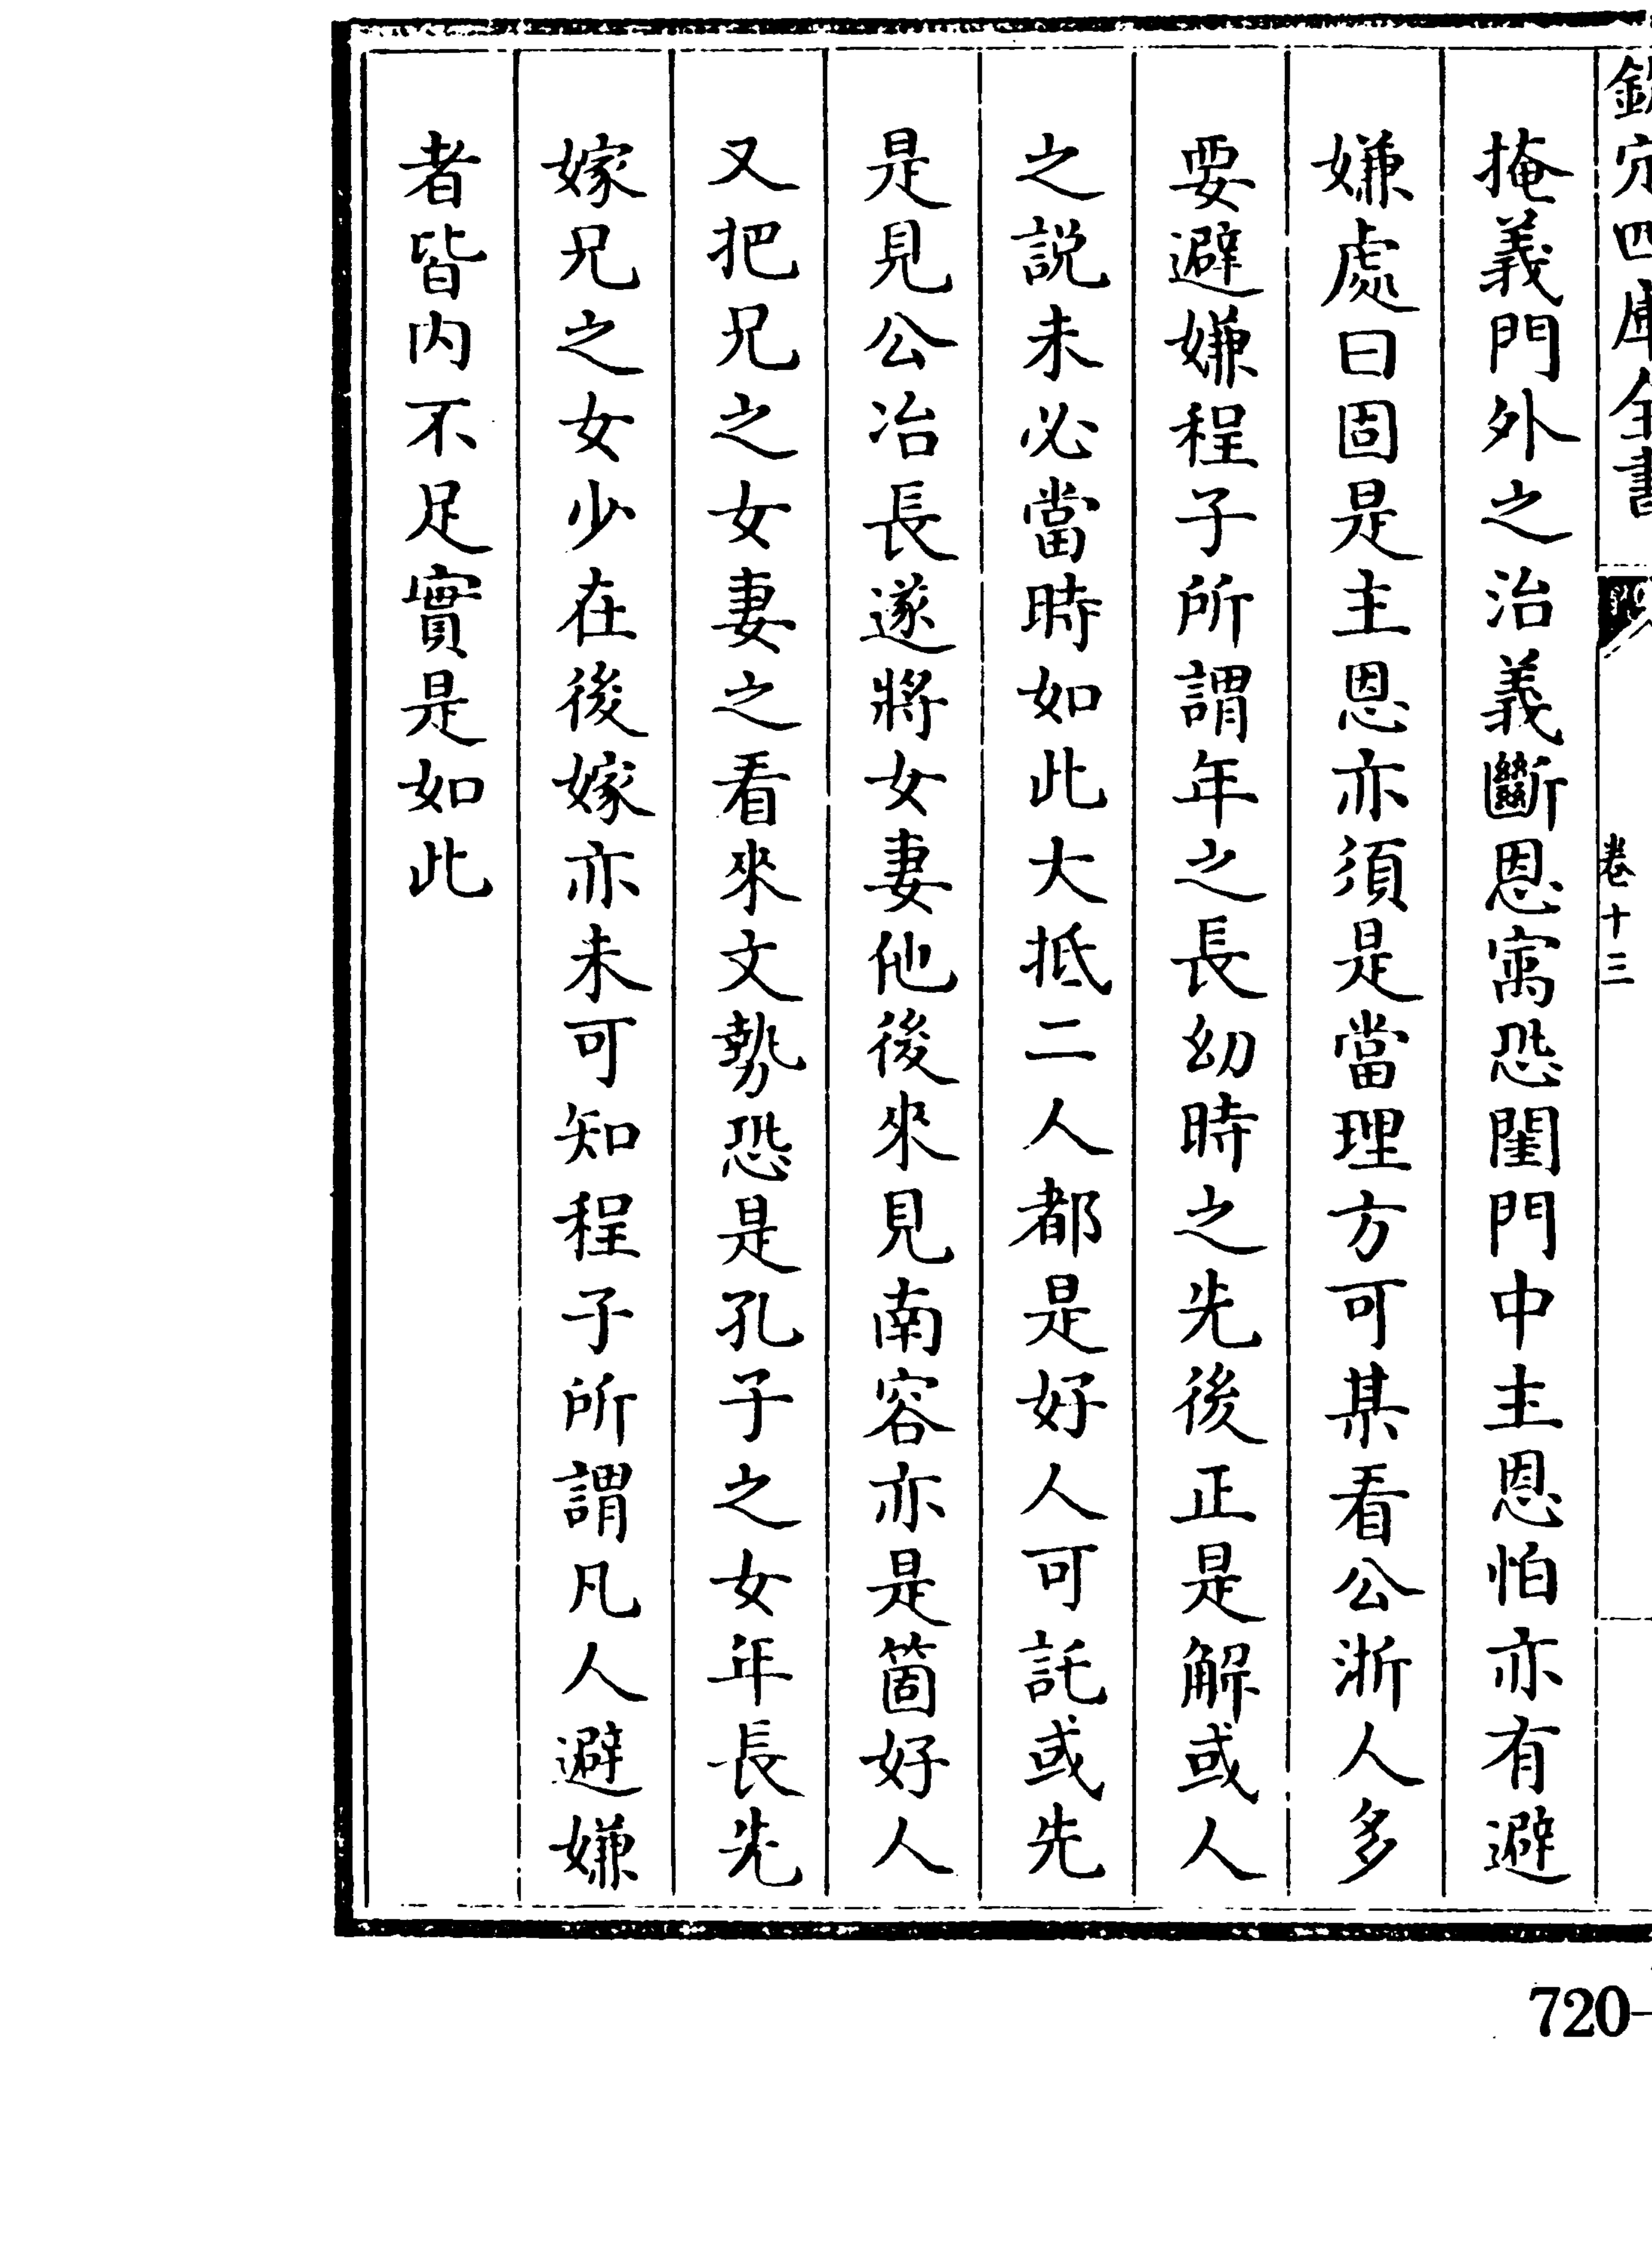 欽定四庫全書
卷十三
掩義門外之治義斷恩寓恐閨門中主恩怕亦有避
嫌處曰固是主恩亦須是當理方可某看公浙人多
要避嫌程子所謂年之長幼時之先後正是解或人
之説未必當時如此大抵二人都是好人可託或先
是見公冶長遂將女妻他後來見南容亦是箇好人
又把兄之女妻之看來文勢恐是孔子之女年長先
嫁兄之女少在後嫁亦未可知程子所謂凡人避嫌
者皆内不足實是如此
720-